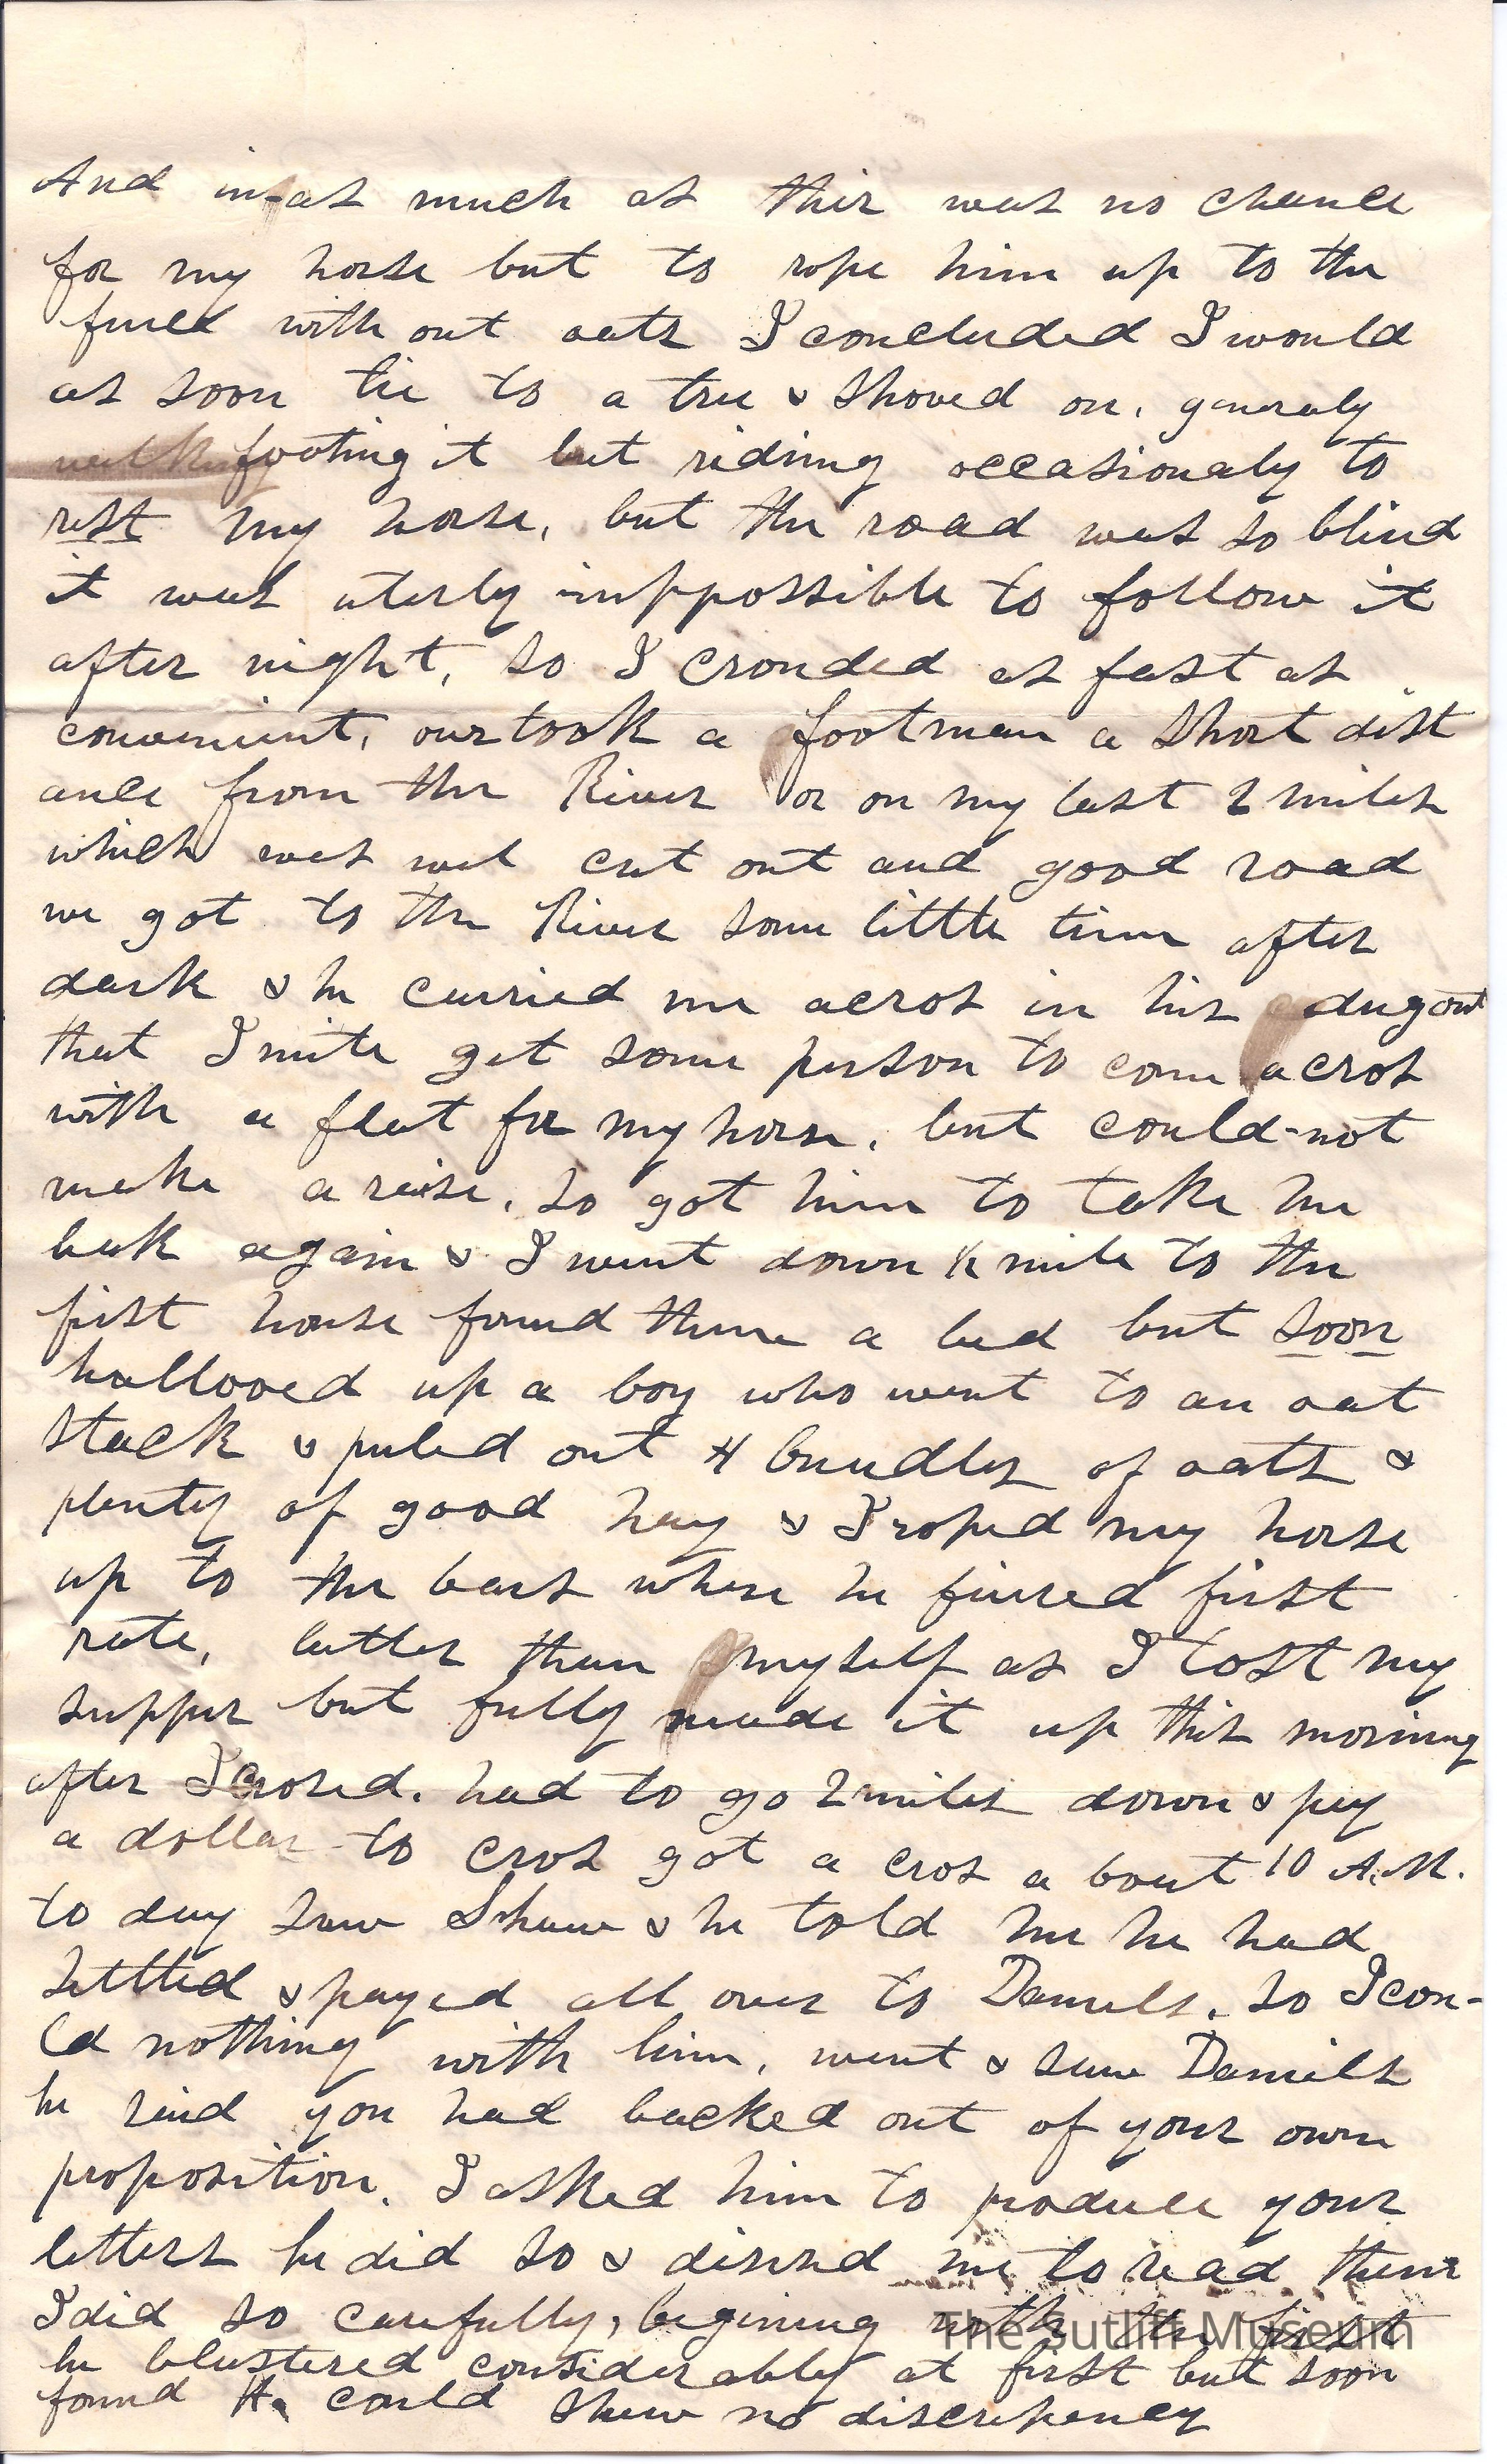 And in-as much as thir was no chance
for my horse but to rope him up to the
fence with out oats I concluded I would
as soon tie to a tree & shoved on, generaly
footing it but riding occasionaly to
rest my horse, but the road was so blind
it was uterly imppossible to follow it
after night, so I crouded as fast as
convenient, overtook a footman a short dist
ance from the River or on my last 2 miles
which was wel cut out and good road
we got to the River some little time after
dark & he carried me acros in his dugout
that I mite get some person to come acros
with a flat for my horse, but could-not
make a raise, so got him to take me
back again & I went down ½ mile to the
first house found them a bed but soon
hallooed up a boy who went to an oat
stack & puled out 4 bundles of oats &
plenty of good hay & I roped my horse
up to the bars where he faired first
rate, better than myself as I lost my
supper but fully made it up this morning
after I crosed. had to go 2 miles down & pay
a dollar to cros got a cros a bout 10 A.M.
to day saw Shaw & he told me he had
settled & payed all over to Daniels. so I con-
ld nothing with him, went & saw Daniels
he said you had backed out of your own
proposition. I asked him to produce your
letters he did so & desired me to read them
I did so carefully, begining with the first
he blustered considerably at first but soon
found He could shew no discrepancy
The Sutliff Museum